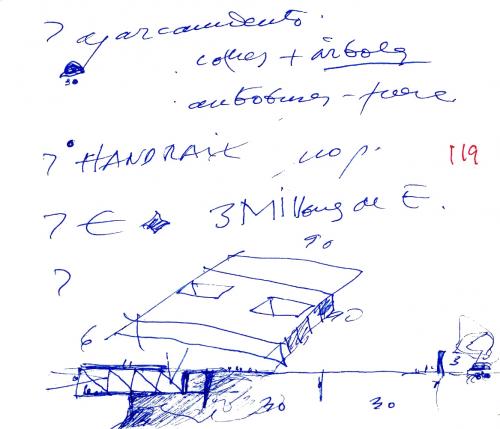 ? aparcamiento.
30
coches + árboles
autobuses - fuera
? HANDRAIL no p.
119
? € 3 Millones de E.
?
90
6
40
3
30 30